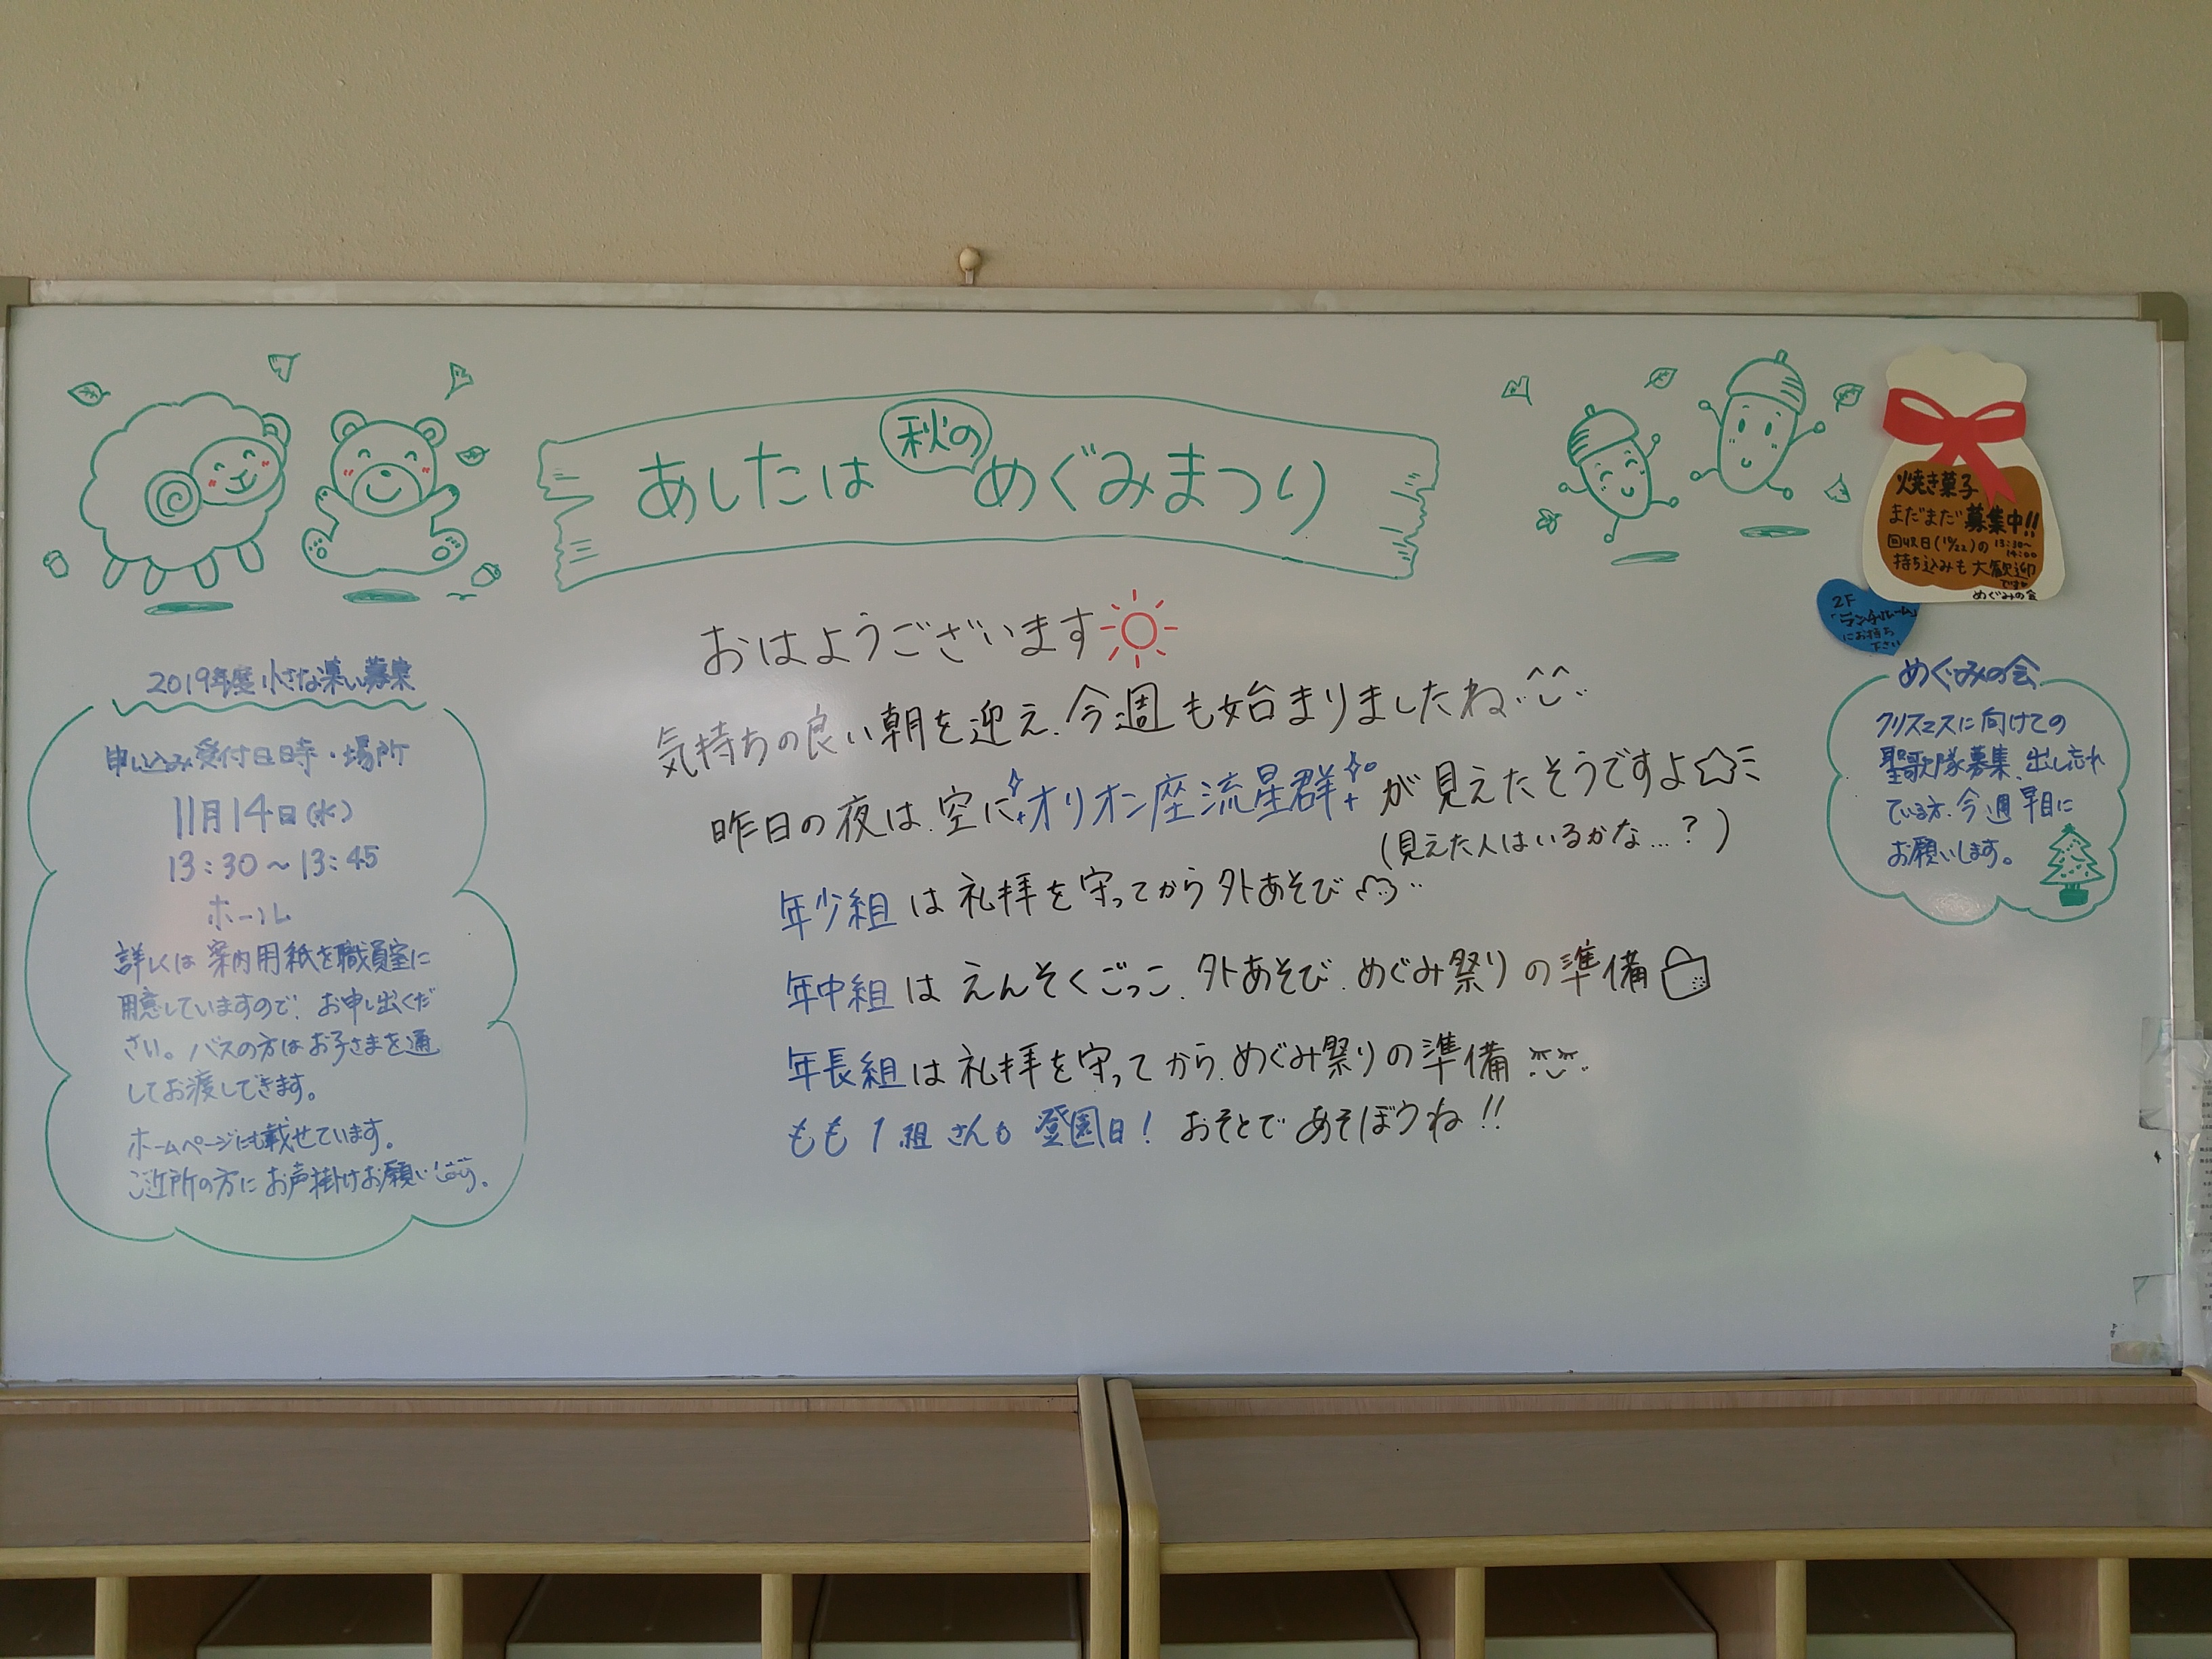 あしたは秋のめぐみまつり
おはようございます
気持ちの良い朝を迎え、今週も始まりましたね
昨日の夜は、空にオリオン座流星群が見えたそうですよ☆
(見えた人はいるかな…？)
年少組は礼拝を守ってから外あそび
年中組はえんそくごっこ、外あそび、めぐみ祭りの準備
年長組は礼拝を守ってから、めぐみ祭りの準備
もも1組さんも登園日！おそとであそぼうね!!
2019年度小さな集い募集
申し込み受付日時・場所
11月14日(水)
13:30～13:45
ホール
詳しくは案内用紙を職員室に
用意していますので、お申し出くだ
さい。バスの方はお子さまを通
してお渡しできます。
ホームページにも載せています。
ご近所の方にお声掛けお願い
焼き菓子
まだまだ募集中!!
回収日(10/22)の13:30～
14:00
持ち込みも大歓迎
です
めぐみの会
2F
「ランチルーム」
にお持ち
下さい
めぐみの会
クリスマスに向けての
聖歌隊募集、出し忘れ
ている方、今週早目に
お願いします。